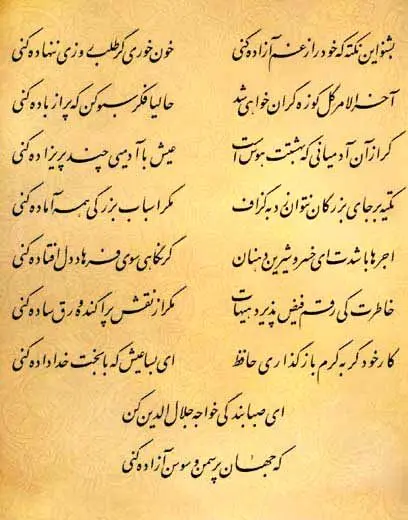 بشنو این نکته که خود را ز غم آزاده کنی خون خوری گر طلب روزی ننهاده کنی
آخرالامر گل کوزه گران خواهی شد حالیا فکر سبو کن که پر از باده کنی
گر از آن آدمیانی که بهشتت هوس است عیش با آدمیی چند پریزاده کنی
تکیه بر جای بزرگان نتوان زد به گزاف مگر اسباب بزرگی همه آماده کنی
اجرها باشدت ای خسرو شیرین دهنان گر نگاهی سوی فرهاد دل افتاده کنی
خاطرت کی رقم فیض پذیرد هیهات مگر از نقش پراکنده ورق ساده کنی
کار خود گر به کرم بازگذاری حافظ ای بسا عیش که با بخت خداداده کنی
ای صبا بندگی خواجه جلال الدین کن
که جهان پر سمن و سوسن آزاده کنی